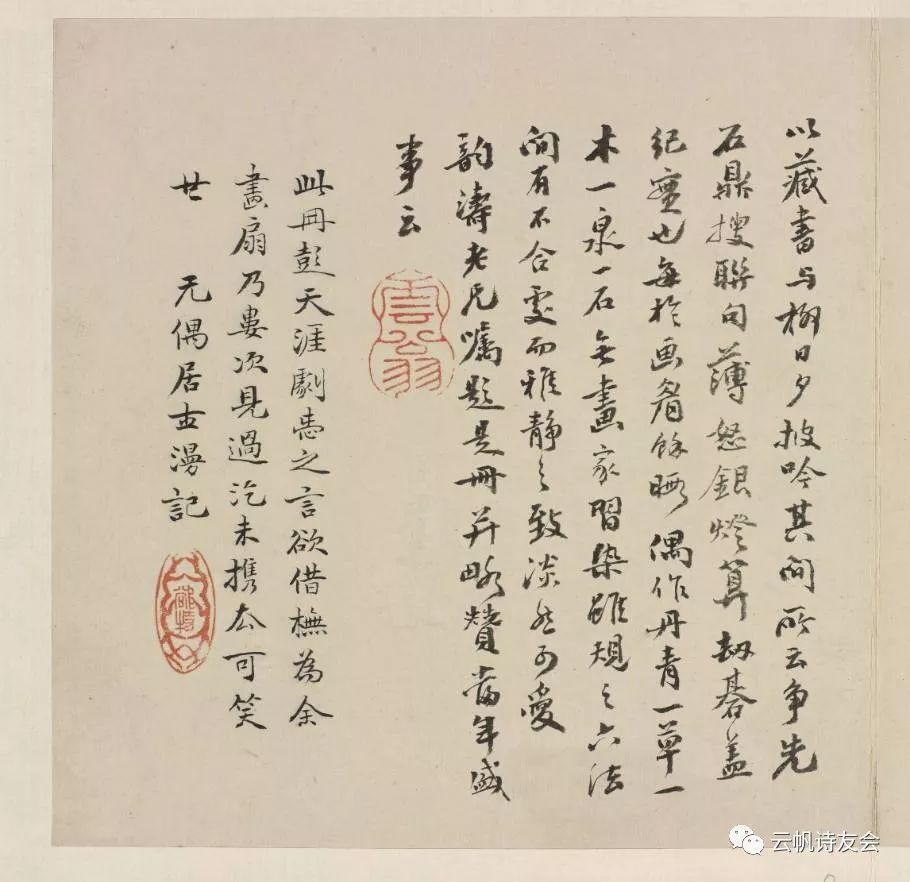 以藏书与栁日夕披吟其间所云争先
石鼎搜聯句薄怒銀燈算劫碁盖
纪實也每於画眉餘暇偶作丹青一草一
木一泉一石無畫家習染雖規之六法
间有不合處而雅静之致淡然可愛
韵濤老兄囑題是冊并略贊當年盛
事云
雲翁
此冊彭天涯劇
之言欲借橅為余
畫扇乃婁次見過汔未携去可笑
廿 无偶居士漫記
云帆诗友会